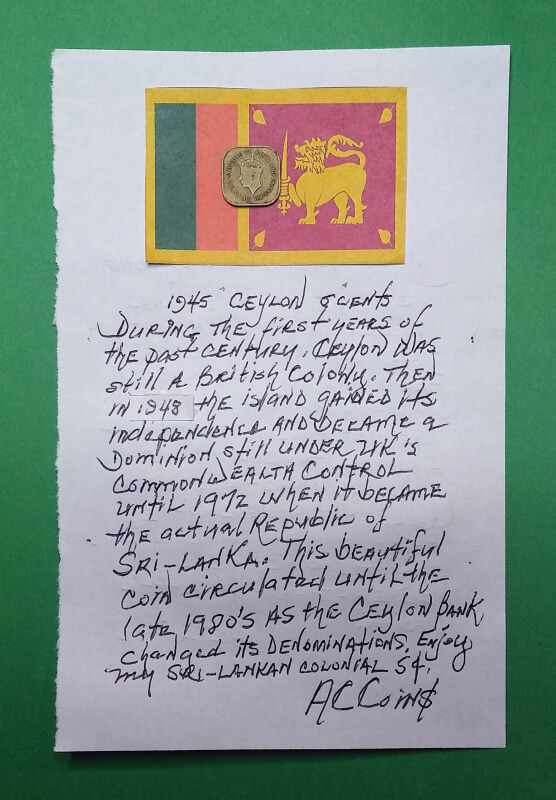 1945 CEYLON 5 CENTS
DURING THE first YEARS of
the past CENTURY, CEYLON WAS
still A British Colony. Then
IN 1948 the island GAINED its
independence AND BECAME a
Dominion still UNDER UK's
COMMONWEALTH CONTROL
UNTIL 1972 WHEN it BECAME
the actual Republic of
SRI-LANKA. This beautiful
Coin circulated until the
late 1980's AS the CEYLON BANK
changed its DENOMINATIONS. Enjoy
my SRI-LANKAN COLONIAL 5¢.
ACCoin$